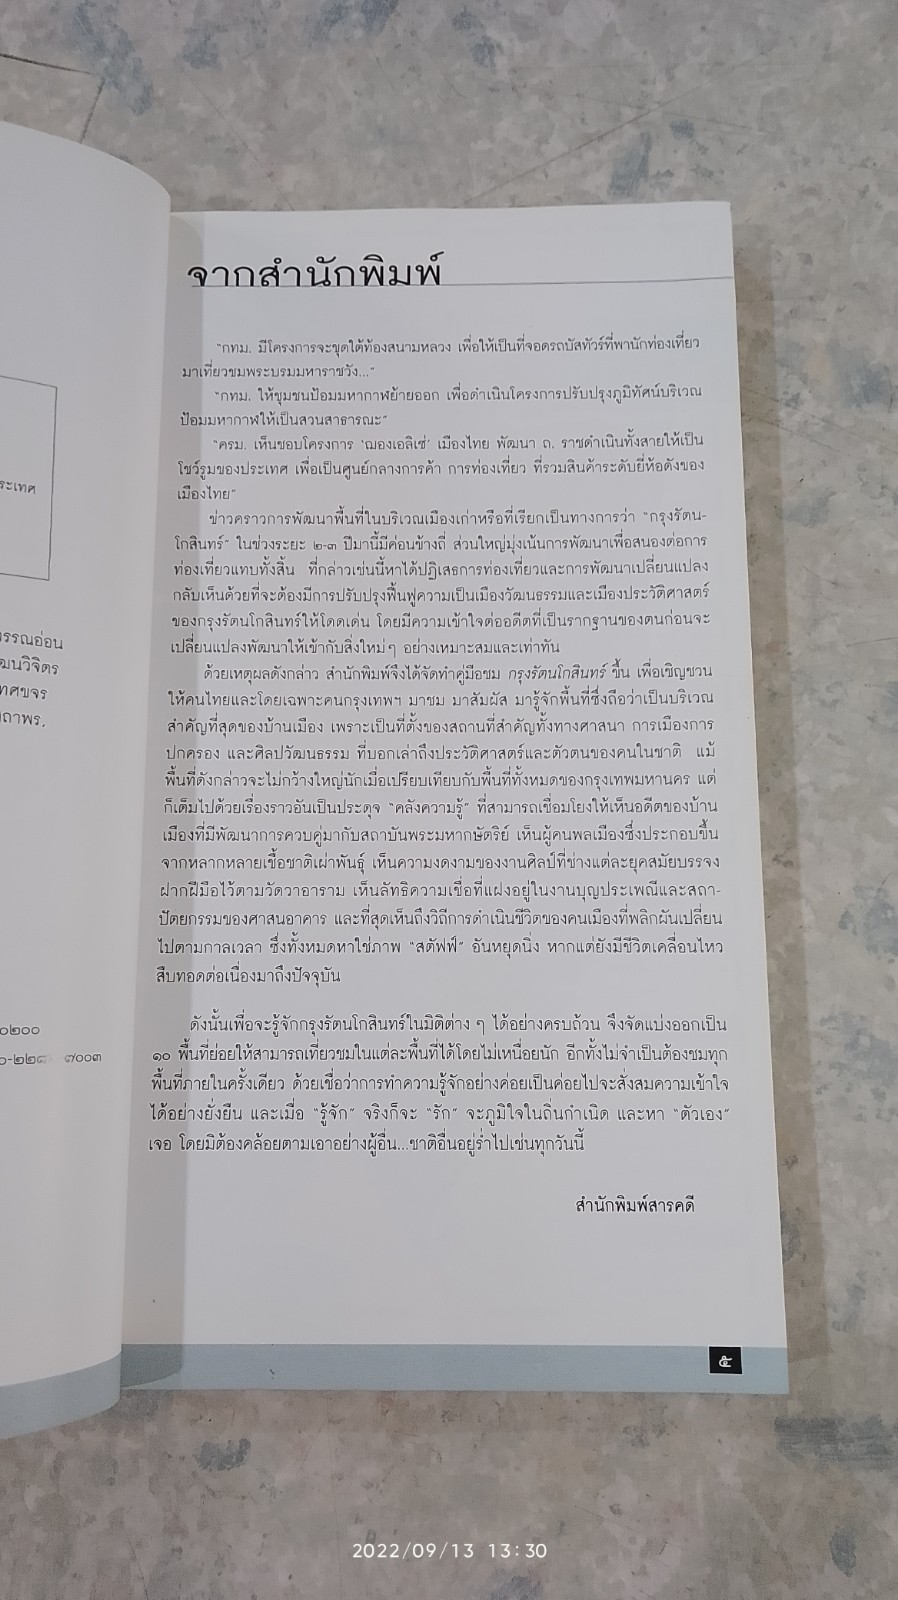 จากสำนักพิมพ์
"กทม. มีโครงการจะขุดใต้ท้องสนามหลวง เพื่อให้เป็นที่จอดรถบัสทัวร์ที่พานักท่องเที่ยว
มาเที่ยวชมพระบรมมหาราชวัง..."
"กทม. ให้ชุมชนป้อมมหากาฬย้ายออก เพื่อดำเนินโครงการปรับปรุงภูมิทัศน์บริเวณ
ป้อมมหากาฬให้เป็นสวนสาธารณะ"
"ครม. เห็นชอบโครงการ 'ฌองเอลิเซ่' เมืองไทย พัฒนา ถ. ราชดำเนินทั้งสายให้เป็น
โชว์รูมของประเทศ เพื่อเป็นศูนย์กลางการค้า การท่องเที่ยว ที่รวมสินค้าระดับยี่ห้อดังของ
เมืองไทย"
ข่าวคราวการพัฒนาพื้นที่ในบริเวณเมืองเก่าหรือที่เรียกเป็นทางการว่า "กรุงรัตน-
โกสินทร์" ในช่วงระยะ ๒-๓ ปีมานี้มีค่อนข้างถี่ ส่วนใหญ่มุ่งเน้นการพัฒนาเพื่อสนองต่อการ
ท่องเที่ยวแทบทั้งสิ้น ที่กล่าวเช่นนี้หาได้ปฏิเสธการท่องเที่ยวและการพัฒนาเปลี่ยนแปลง
กลับเห็นด้วยที่จะต้องมีการปรับปรุงฟื้นฟูความเป็นเมืองวัฒนธรรมและเมืองประวัติศาสตร์
ของกรุงรัตนโกสินทร์ให้โดดเด่น โดยมีความเข้าใจต่ออดีตที่เป็นรากฐานของตนก่อนจะ
เปลี่ยนแปลงพัฒนาให้เข้ากับสิ่งใหม่ๆ อย่างเหมาะสมและเท่าทัน
ด้วยเหตุผลดังกล่าว สำนักพิมพ์จึงได้จัดทำคู่มือชม กรุงรัตนโกสินทร์ ขึ้น เพื่อเชิญชวน
ให้คนไทยและโดยเฉพาะคนกรุงเทพฯ มาชม มาสัมผัส มารู้จักพื้นที่ซึ่งถือว่าเป็นบริเวณ
สำคัญที่สุดของบ้านเมือง เพราะเป็นที่ตั้งของสถานที่สำคัญทั้งทางศาสนา การเมืองการ
ปกครอง และศิลปวัฒนธรรม ที่บอกเล่าถึงประวัติศาสตร์และตัวตนของคนในชาติ แม้
พื้นที่ดังกล่าวจะไม่กว้างใหญ่นักเมื่อเปรียบเทียบกับพื้นที่ทั้งหมดของกรุงเทพมหานคร แต่
ก็เต็มไปด้วยเรื่องราวอันเป็นประดุจ "คลังความรู้" ที่สามารถเชื่อมโยงให้เห็นอดีตของบ้าน
เมืองที่มีพัฒนาการควบคู่มากับสถาบันพระมหากษัตริย์ เห็นผู้คนพลเมืองซึ่งประกอบขึ้น
จากหลากหลายเชื้อชาติเผ่าพันธุ์ เห็นความงดงามของงานศิลป์ที่ช่างแต่ละยุคสมัยบรรจง
ฝากฝีมือไว้ตามวัดวาอาราม เห็นลัทธิความเชื่อที่แฝงอยู่ในงานบุญประเพณีและสถา-
ปัตยกรรมของศาสนอาคาร และที่สุดเห็นถึงวิถีการดำเนินชีวิตของคนเมืองที่พลิกผันเปลี่ยน
ไปตามกาลเวลา ซึ่งทั้งหมดหาใช่ภาพ "สตัฟฟ์" อันหยุดนิ่ง หากแต่ยังมีชีวิตเคลื่อนไหว
สืบทอดต่อเนื่องมาถึงปัจจุบัน
ดังนั้นเพื่อจะรู้จักกรุงรัตนโกสินทร์ในมิติต่าง ๆ ได้อย่างครบถ้วน จึงจัดแบ่งออกเป็น
๑๐ พื้นที่ย่อยให้สามารถเที่ยวชมในแต่ละพื้นที่ได้โดยไม่เหนื่อยนัก อีกทั้งไม่จำเป็นต้องชมทุก
พื้นที่ภายในครั้งเดียว ด้วยเชื่อว่าการทำความรู้จักอย่างค่อยเป็นค่อยไปจะสั่งสมความเข้าใจ
ได้อย่างยั่งยืน และเมื่อ "รู้จัก" จริงก็จะ "รัก" จะภูมิใจในถิ่นกำเนิด และหา "ตัวเอง"
เจอ โดยมิต้องคล้อยตามเอาอย่างผู้อื่น...ชาติอื่นอยู่ร่ำไปเช่นทุกวันนี้
สำนักพิมพ์สารคดี
๕
2022/09/13 13:30